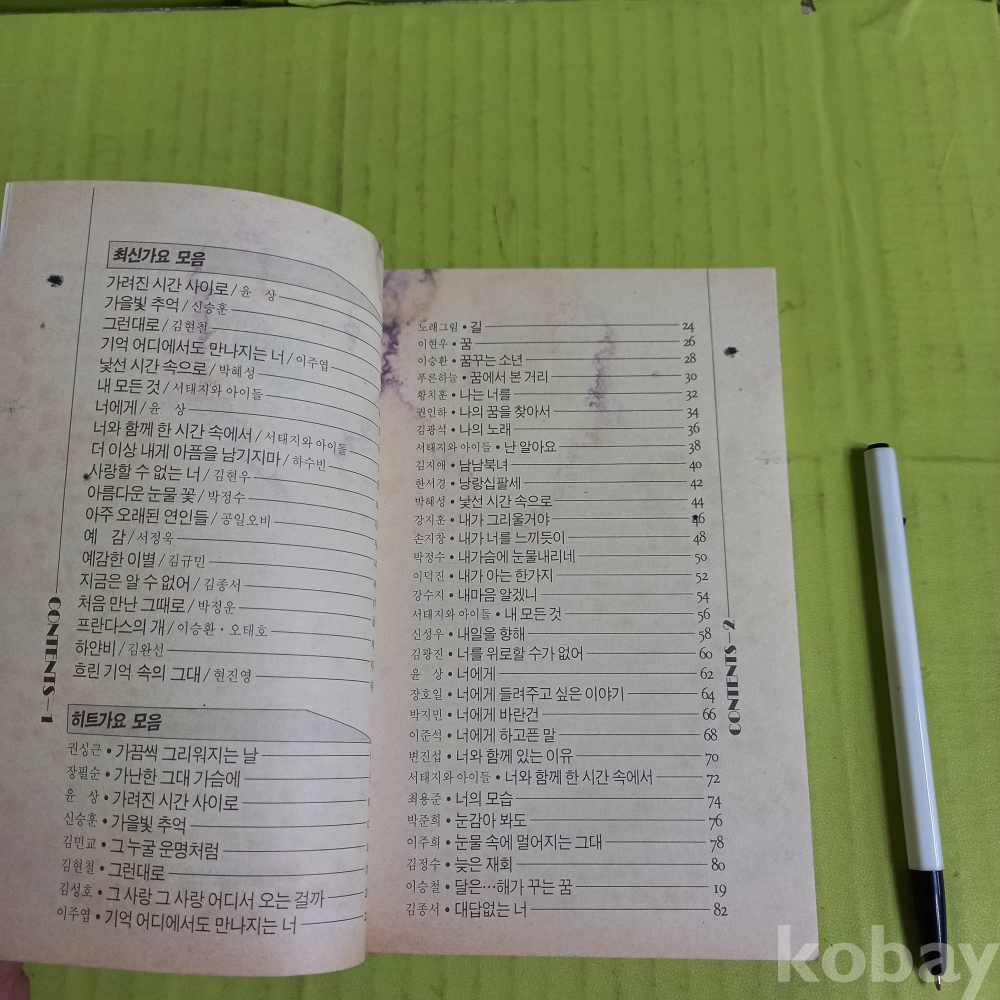 최신가요 모음
가려진 시간 사이로 / 윤 상
가을빛 추억 / 신승훈
그런대로 / 김현철
기억 어디에서도 만나지는 너 / 이주엽
낯선 시간 속으로 / 박혜성
내 모든 것 / 서태지와 아이들
너에게 / 윤 상
너와 함께 한 시간 속에서 / 서태지와 아이들
더 이상 내게 아픔을 남기지마 / 하수빈
사랑할 수 없는 너 / 김현우
아름다운 눈물 꽃 / 박정수
아주 오래된 연인들 / 공일오비
예 감 / 서정욱
예감한 이별 / 김규민
지금은 알 수 없어 / 김종서
처음 만난 그때로 / 박정운
프란다스의 개 / 이승환 · 오태호
하얀비 / 김완선
흐린 기억 속의 그대 / 현진영
CONTENTS-1
히트가요 모음
권싱근 • 가끔씩 그리워지는 날
장필순 • 가난한 그대 가슴에
윤 상 • 가려진 시간 사이로
신승훈 • 가을빛 추억
김민교 • 그 누굴 운명처럼
김현철 • 그런대로
김성호 • 그 사랑 그 사랑 어디서 오는 걸까
이주엽 • 기억 어디에서도 만나지는 너
노래그림 • 길 24
이현우 • 꿈 26
이승환 • 꿈꾸는 소년 28
푸른하늘 • 꿈에서 본 거리 30
황치훈 • 나는 너를 32
권인하 • 나의 꿈을 찾아서 34
김광석 • 나의 노래 36
서태지와 아이들 • 난 알아요 38
김지애 • 남남북녀 40
한서경 • 낭랑십팔세 42
박혜성 • 낯선 시간 속으로 44
강지훈 • 내가 그리울거야 46
손지창 • 내가 너를 느끼듯이 48
박정수 • 내가슴에 눈물내리네 50
이덕진 • 내가 아는 한가지 52
강수지 • 내마음 알겠니 54
서태지와 아이들 • 내 모든 것 56
신성우 • 내일을 향해 58
김광진 • 너를 위로할 수가 없어 60
윤 상 • 너에게 62
장호일 • 너에게 들려주고 싶은 이야기 64
박지민 • 너에게 바란건 66
이준석 • 너에게 하고픈 말 68
변진섭 • 너와 함께 있는 이유 70
서태지와 아이들 • 너와 함께 한 시간 속에서 72
최용준 • 너의 모습 74
박준희 • 눈감아 봐도 76
이주희 • 눈물 속에 멀어지는 그대 78
김정수 • 늦은 재회 80
이승철 • 달은…해가 꾸는 꿈 19
김종서 • 대답없는 너 82
CONTENTS-2
kobay